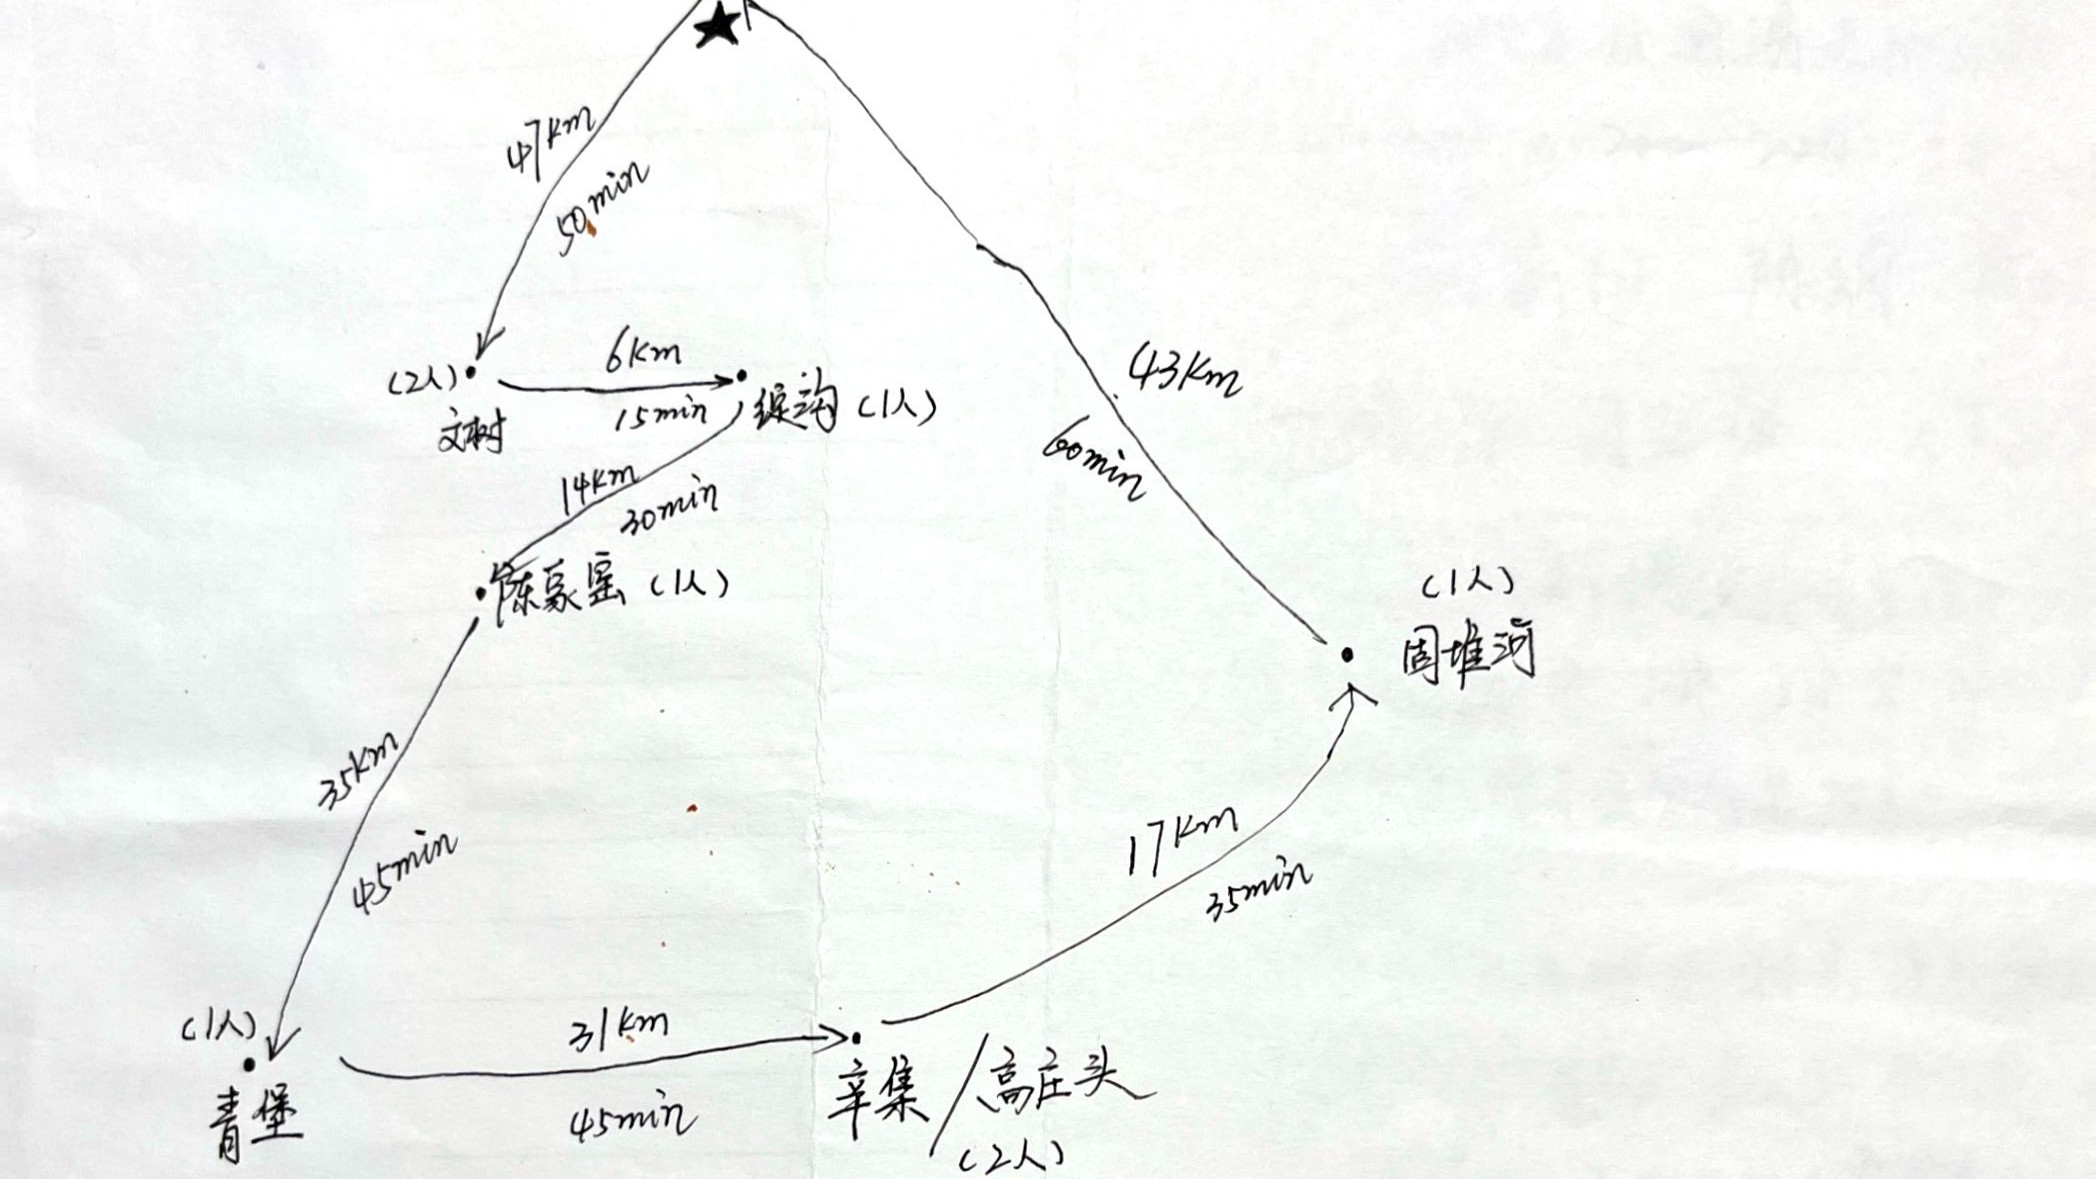 47km
50min
(2人)
文树
6km
15min
缐沟(1人)
14km
30min
陈家窑(1人)
43km
60min
(1人)
固堆河
35km
45min
17km
35min
(1人)
青堡
31km
45min
辛集/高庄头
(2人)